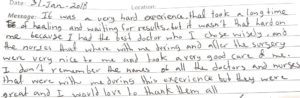 Date: 31-Jan-2018 Location:
Message: It was a very hard experience that took a long time
of healing and waiting for results. but wasn't that hard on
me because I had the best doctor who I chose wisely. and
the nurses that where with me during and after the surgery
were very nice to me and took a very good care of me.
I don't remember the names of all the doctors and nurses
that were with me during this experience but they were
great and I would love to thank them all